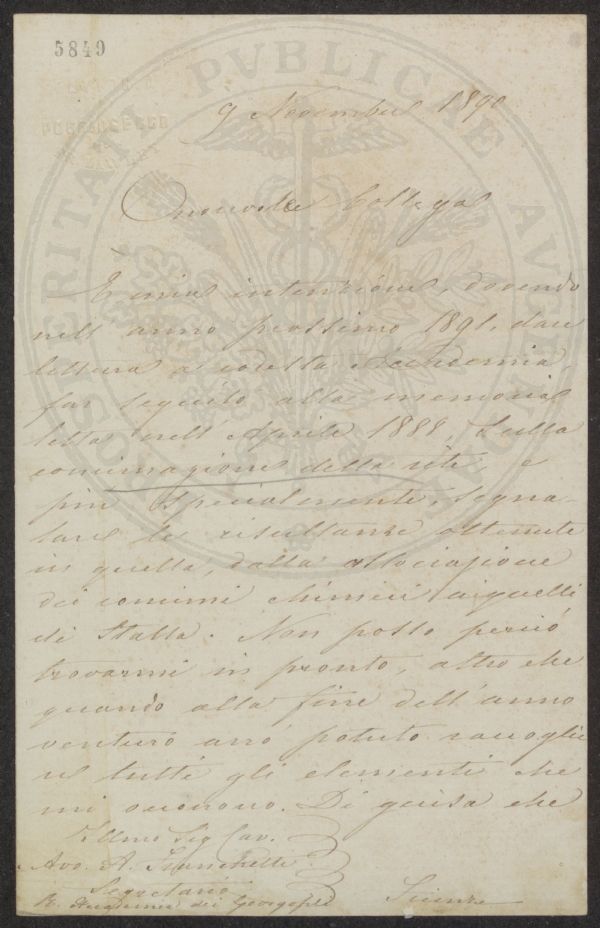 5849
PROSPERITATI PVBLICAE AVGENDAE
9 Novembre 1890
Onorevole Collega
È mia intenzione, dovendo
nell'anno prossimo 1891, dare
lettura a codesta Accademia,
far seguito alla memoria
letta nell'Aprile 1888, sulla
concimazione della vite, e
più specialmente, segna
lare le risultanze ottenute
in quella, dalla associazione
dei concimi chimici a quelli
di Stalla. Non posso perciò
trovarmi in pronto, altro che
quando alla fine dell'anno
venturo avrò potuto raccoglie
re tutti gli elementi che
mi occorrono. Di guisa che
Illmo Sig Cav.
Avv. A.
Segretario
R. Accademia dei Georgofili
Firenze